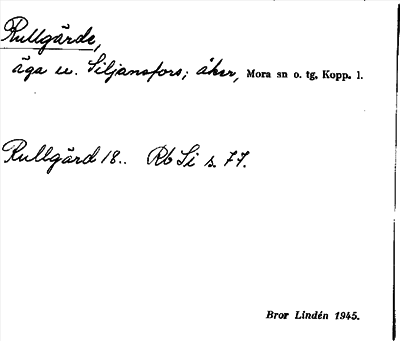 Rullgärde,
äga u. Siljansfors; åker, Mora sn o. tg, Kopp. l.
Rullgärd 18.. Rb Si s. 77.
Bror Lindén 1945.